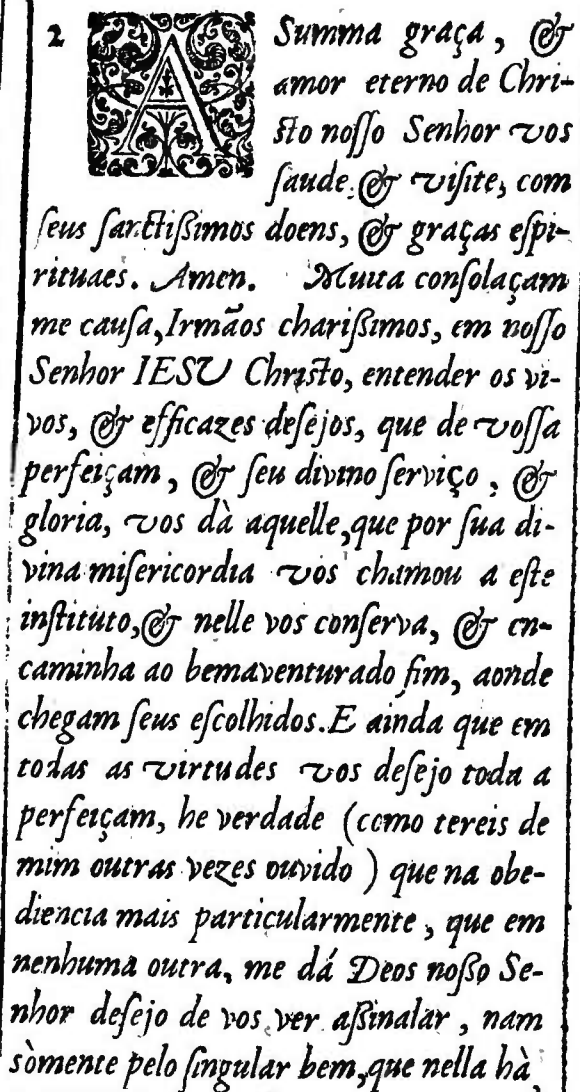 2 A Summa graça, &
amor eterno de Chri-
ſto noſſo Senhor vos
ſaude, & viſite, com
ſeus ſanctiſsimos doens, & graças eſpi-
rituaes. Amen. Muita conſolaçam
me cauſa, Irmãos chariſsimos, em noſſo
Senhor IESU Chriſto, entender os vi-
vos, & efficazes deſejos, que de voſſa
perfeiçam, & ſeu divino ſerviço, &
gloria, vos dà aquelle, que por ſua di-
vina miſericordia vos chamou a eſte
inſtituto, & nelle vos conſerva, & en-
caminha ao bemaventurado fim, aonde
chegam ſeus eſcolhidos. E ainda que em
todas as virtudes vos deſejo toda a
perfeiçam, he verdade (como tereis de
mim outras vezes ouvido) que na obe-
diencia mais particularmente, que em
nenhuma outra, me dá Deos noſſo Se-
nhor deſejo de vos ver aſsinalar, nam
sòmente pelo ſingular bem, que nella hà